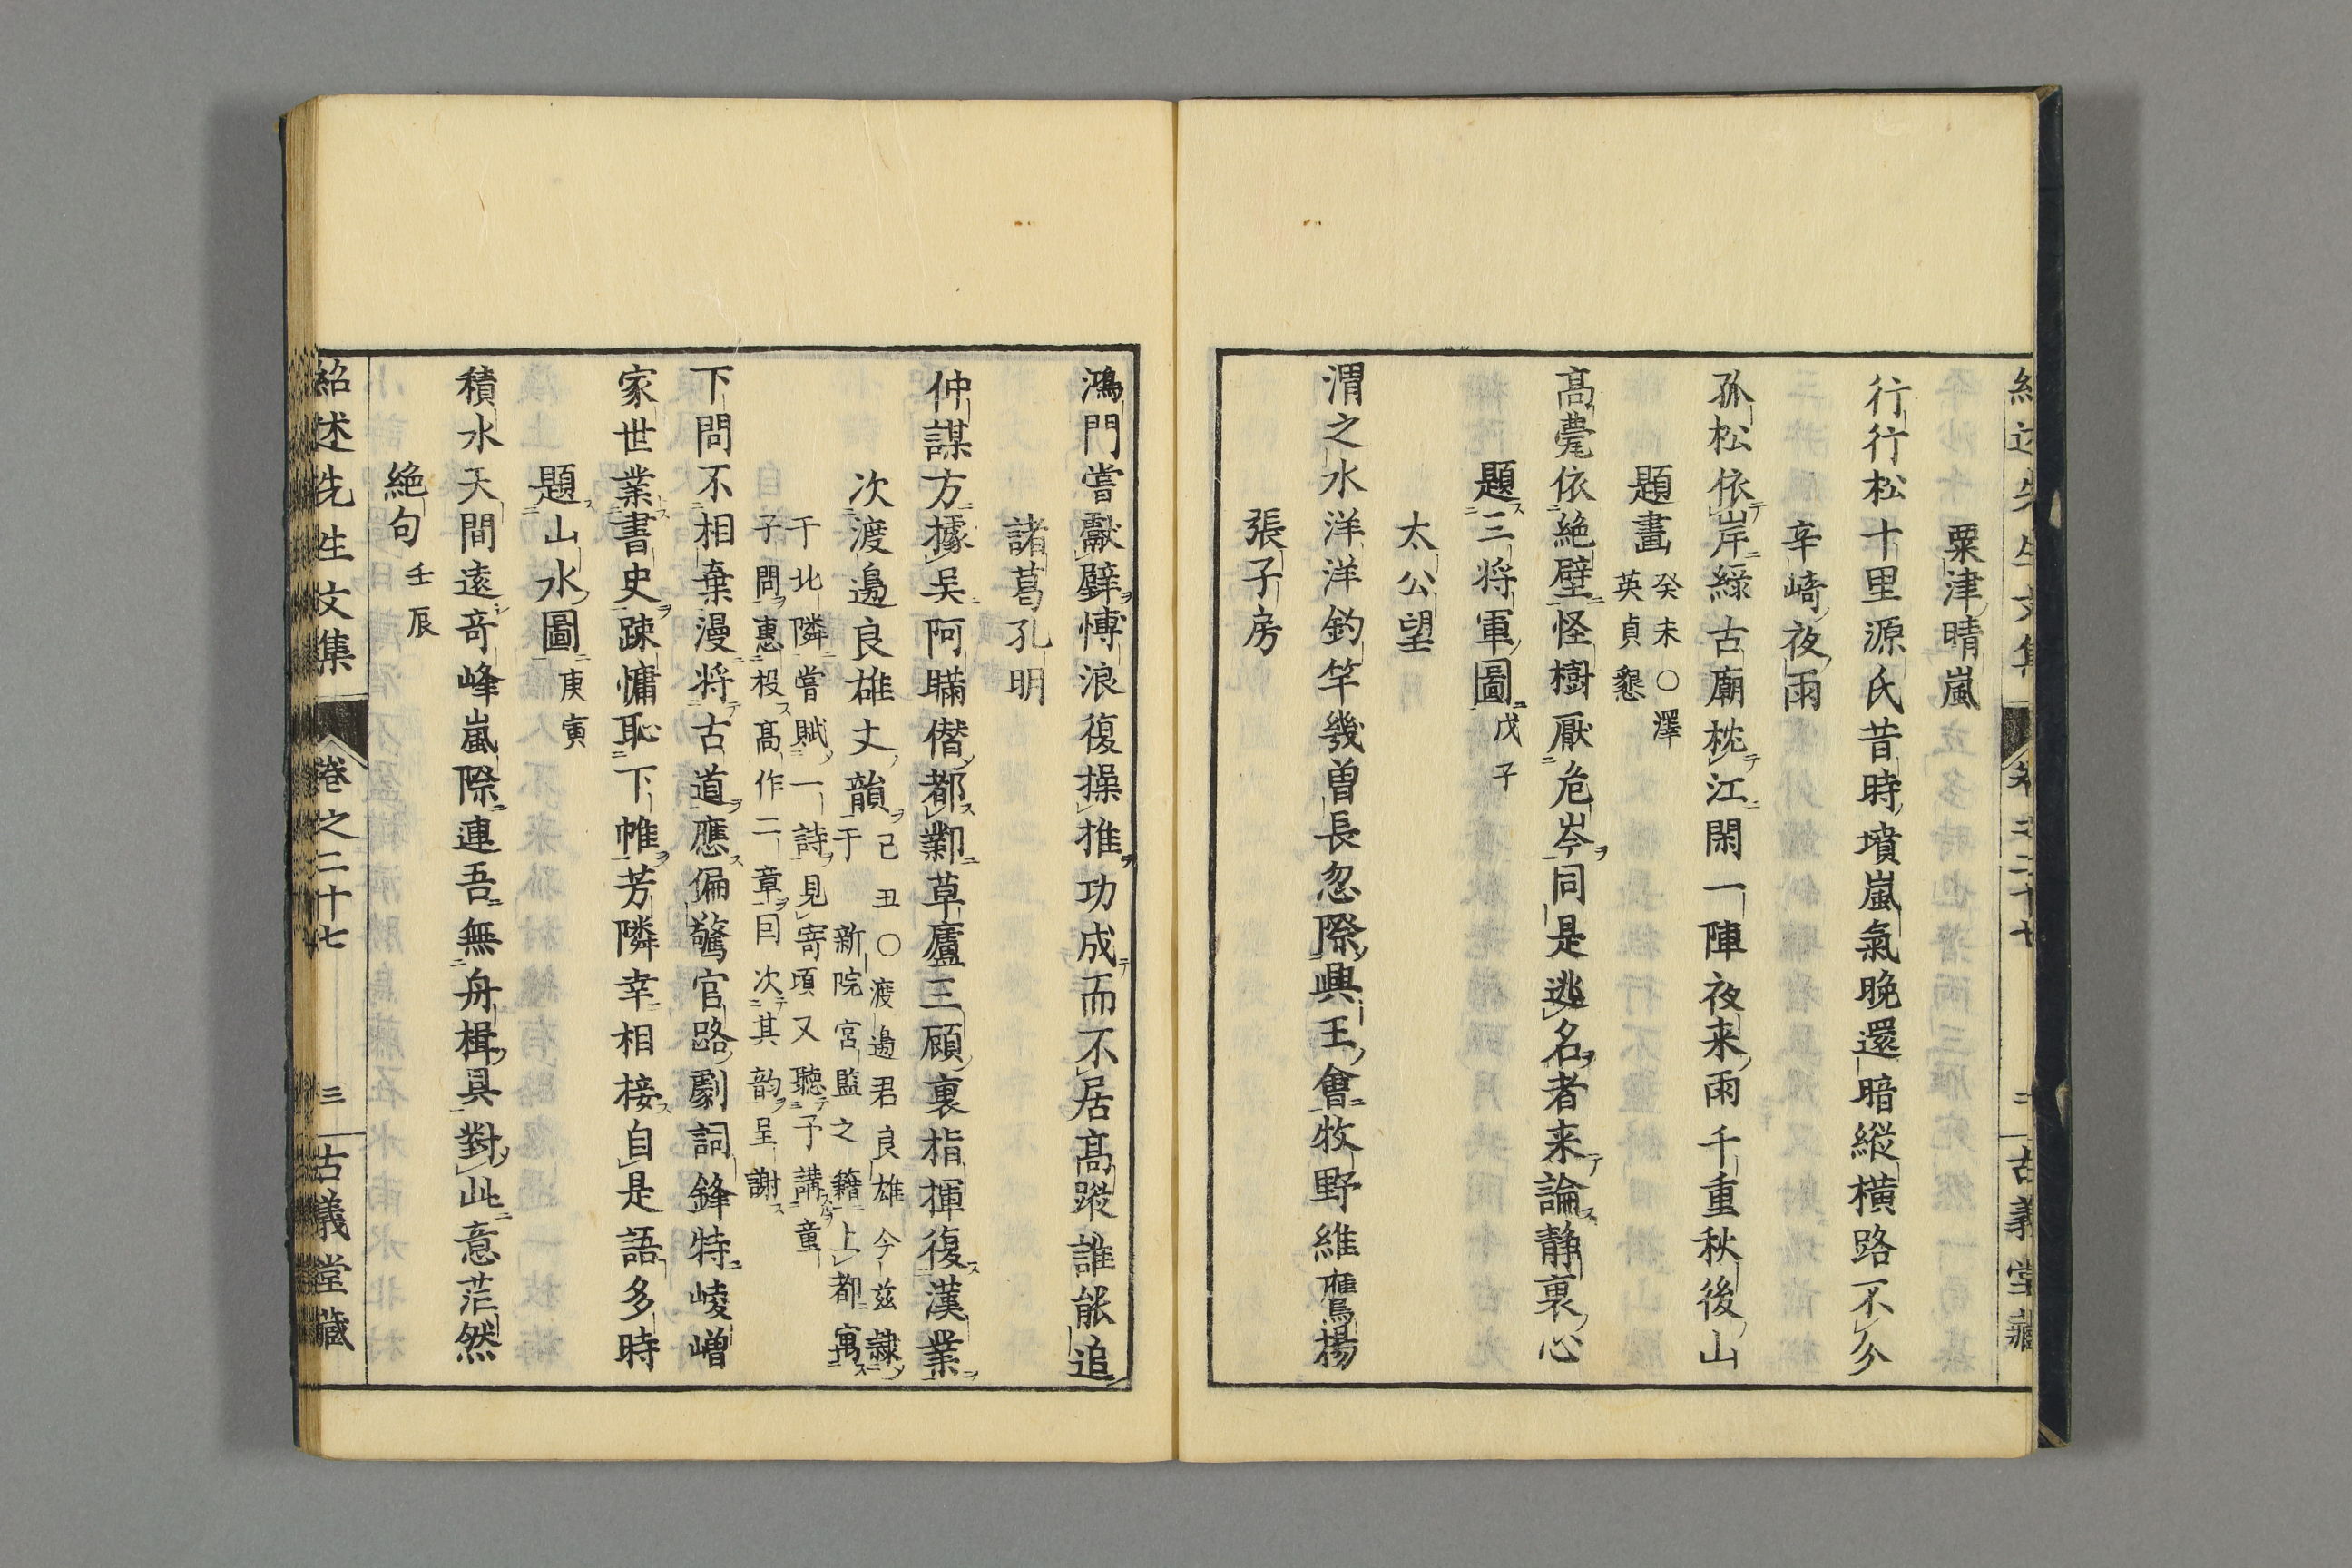 粟津晴嵐
行行松十里源氏昔時墳嵐氣晩還暗縱橫路不分
辛崎夜雨
孤松依岸綠古廟枕江閑一陣夜来雨千重秋後山
題畫癸未○澤英貞懇
高甍依絶壁怪樹厭危岑同是逃名者来論靜裏心
題三将軍圖戊子
太公望
渭之水洋洋釣竿幾曽長忽際興王會牧野維鷹揚
張子房
鴻門嘗獻璧愽浪復操推功成而不居髙蹤誰能追
諸葛孔明
仲謀方據吴阿瞞僭都鄴草廬三顧裏指揮復漢業
次渡邉良雄丈韻己丑○渡邉君良雄今兹隷
于新院宮監之籍上都寓
于北隣嘗賦一詩見寄頃又聽予講童
子問惠投髙作二章囙次其韵呈謝
下問不相棄漫将古道應偏驚官路劇詞鋒特崚嶒
家世業書史踈慵恥下帷芳隣幸相接自是語多時
題山水圖庚寅
積水天間遠奇峰嵐際連吾無舟楫具對此意茫然
絶句壬辰
紹述先生文集 卷之二十七 三 古義堂藏